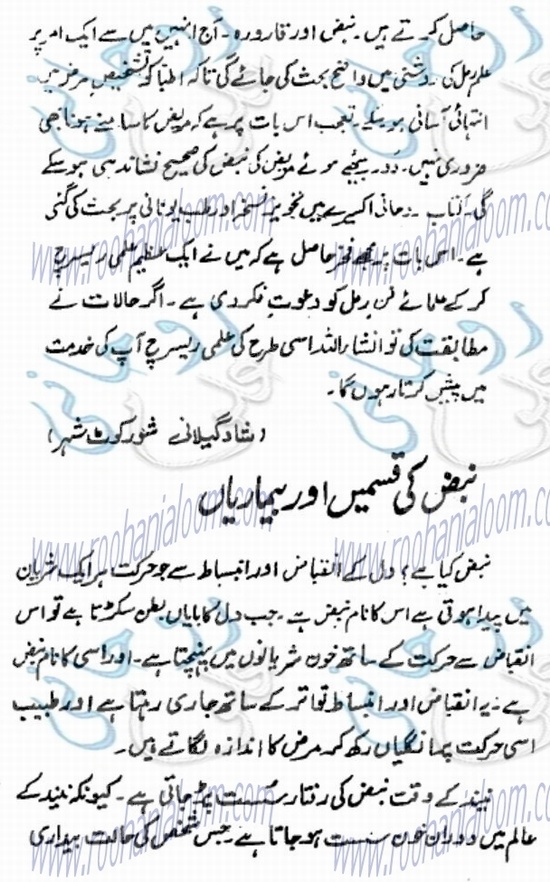 حاصل کرتے ہیں۔ نبض اور قارورہ۔ آج انہیں میں سے ایک امر پر
علم رمل کی روشنی میں واضح بحث کی جائے گی تاکہ اطبا کو تشخیص مرض میں
انتہائی آسانی ہو سکے۔ تعجب اس بات پر ہے کہ مریض کا سامنے ہونا بھی
ضروری نہیں۔ دور بیٹھے ہوئے مریض کی نبض کی صحیح نشاندہی ہو سکے
گی۔ کتاب روحانی اکسیر میں تجویز نسخہ اور طب یونانی پر بحث کی گئی
ہے۔ اس بات پر مجھے فخر حاصل ہے کہ میں نے ایک عظیم علمی ریسرچ
کر کے علمائے فن رمل کو دعوتِ فکر دی ہے۔ اگر حالات نے
مطابقت کی تو انشاء اللہ اسی طرح کی علمی ریسرچ آپ کی خدمت
میں پیش کرتا رہوں گا۔
(شاد گیلانی شورکوٹ شہر)
نبض کی قسمیں اور بیماریاں
نبض کیا ہے؟ دل کے انقباض اور انبساط سے جو حرکت ہر ایک شریان
میں پیدا ہوتی ہے اس کا نام نبض ہے۔ جب دل کا بایاں بطن سکڑتا ہے تو اس
انقباض سے حرکت کے ساتھ خون شریانوں میں پہنچتا ہے۔ اور اسی کا نام نبض
ہے۔ یہ انقباض اور انبساط تواتر کے ساتھ جاری رہتا ہے اور طبیب
اسی حرکت پر انگلیاں رکھ کر مرض کا اندازہ لگاتے ہیں۔
نیند کے وقت نبض کی رفتار سُست پڑ جاتی ہے۔ کیونکہ نیند کے
عالم میں دوران خون سست ہو جاتا ہے۔ جس شخص کی حالت بیداری
www.roohanialoom.com
www.roohanialoom.com
www.roohanialoom.com
www.roohanialoom.com
www.roohanialoom.com
www.roohanialoom.com